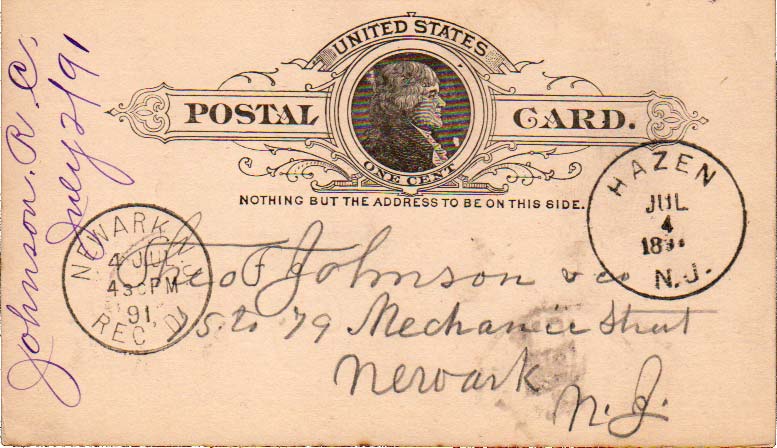 UNITED STATES
POSTAL CARD.
ONE CENT
NOTHING BUT THE ADDRESS TO BE ON THIS SIDE.
HAZEN
JUL
4
N.J.
NEWARK, N.J.
4 JUL
430PM
91
REC'D
Johnson. R C.
July 2/91
Theo F Johnson & co
75 to 79 Mechanic Street
Newark
N. J.